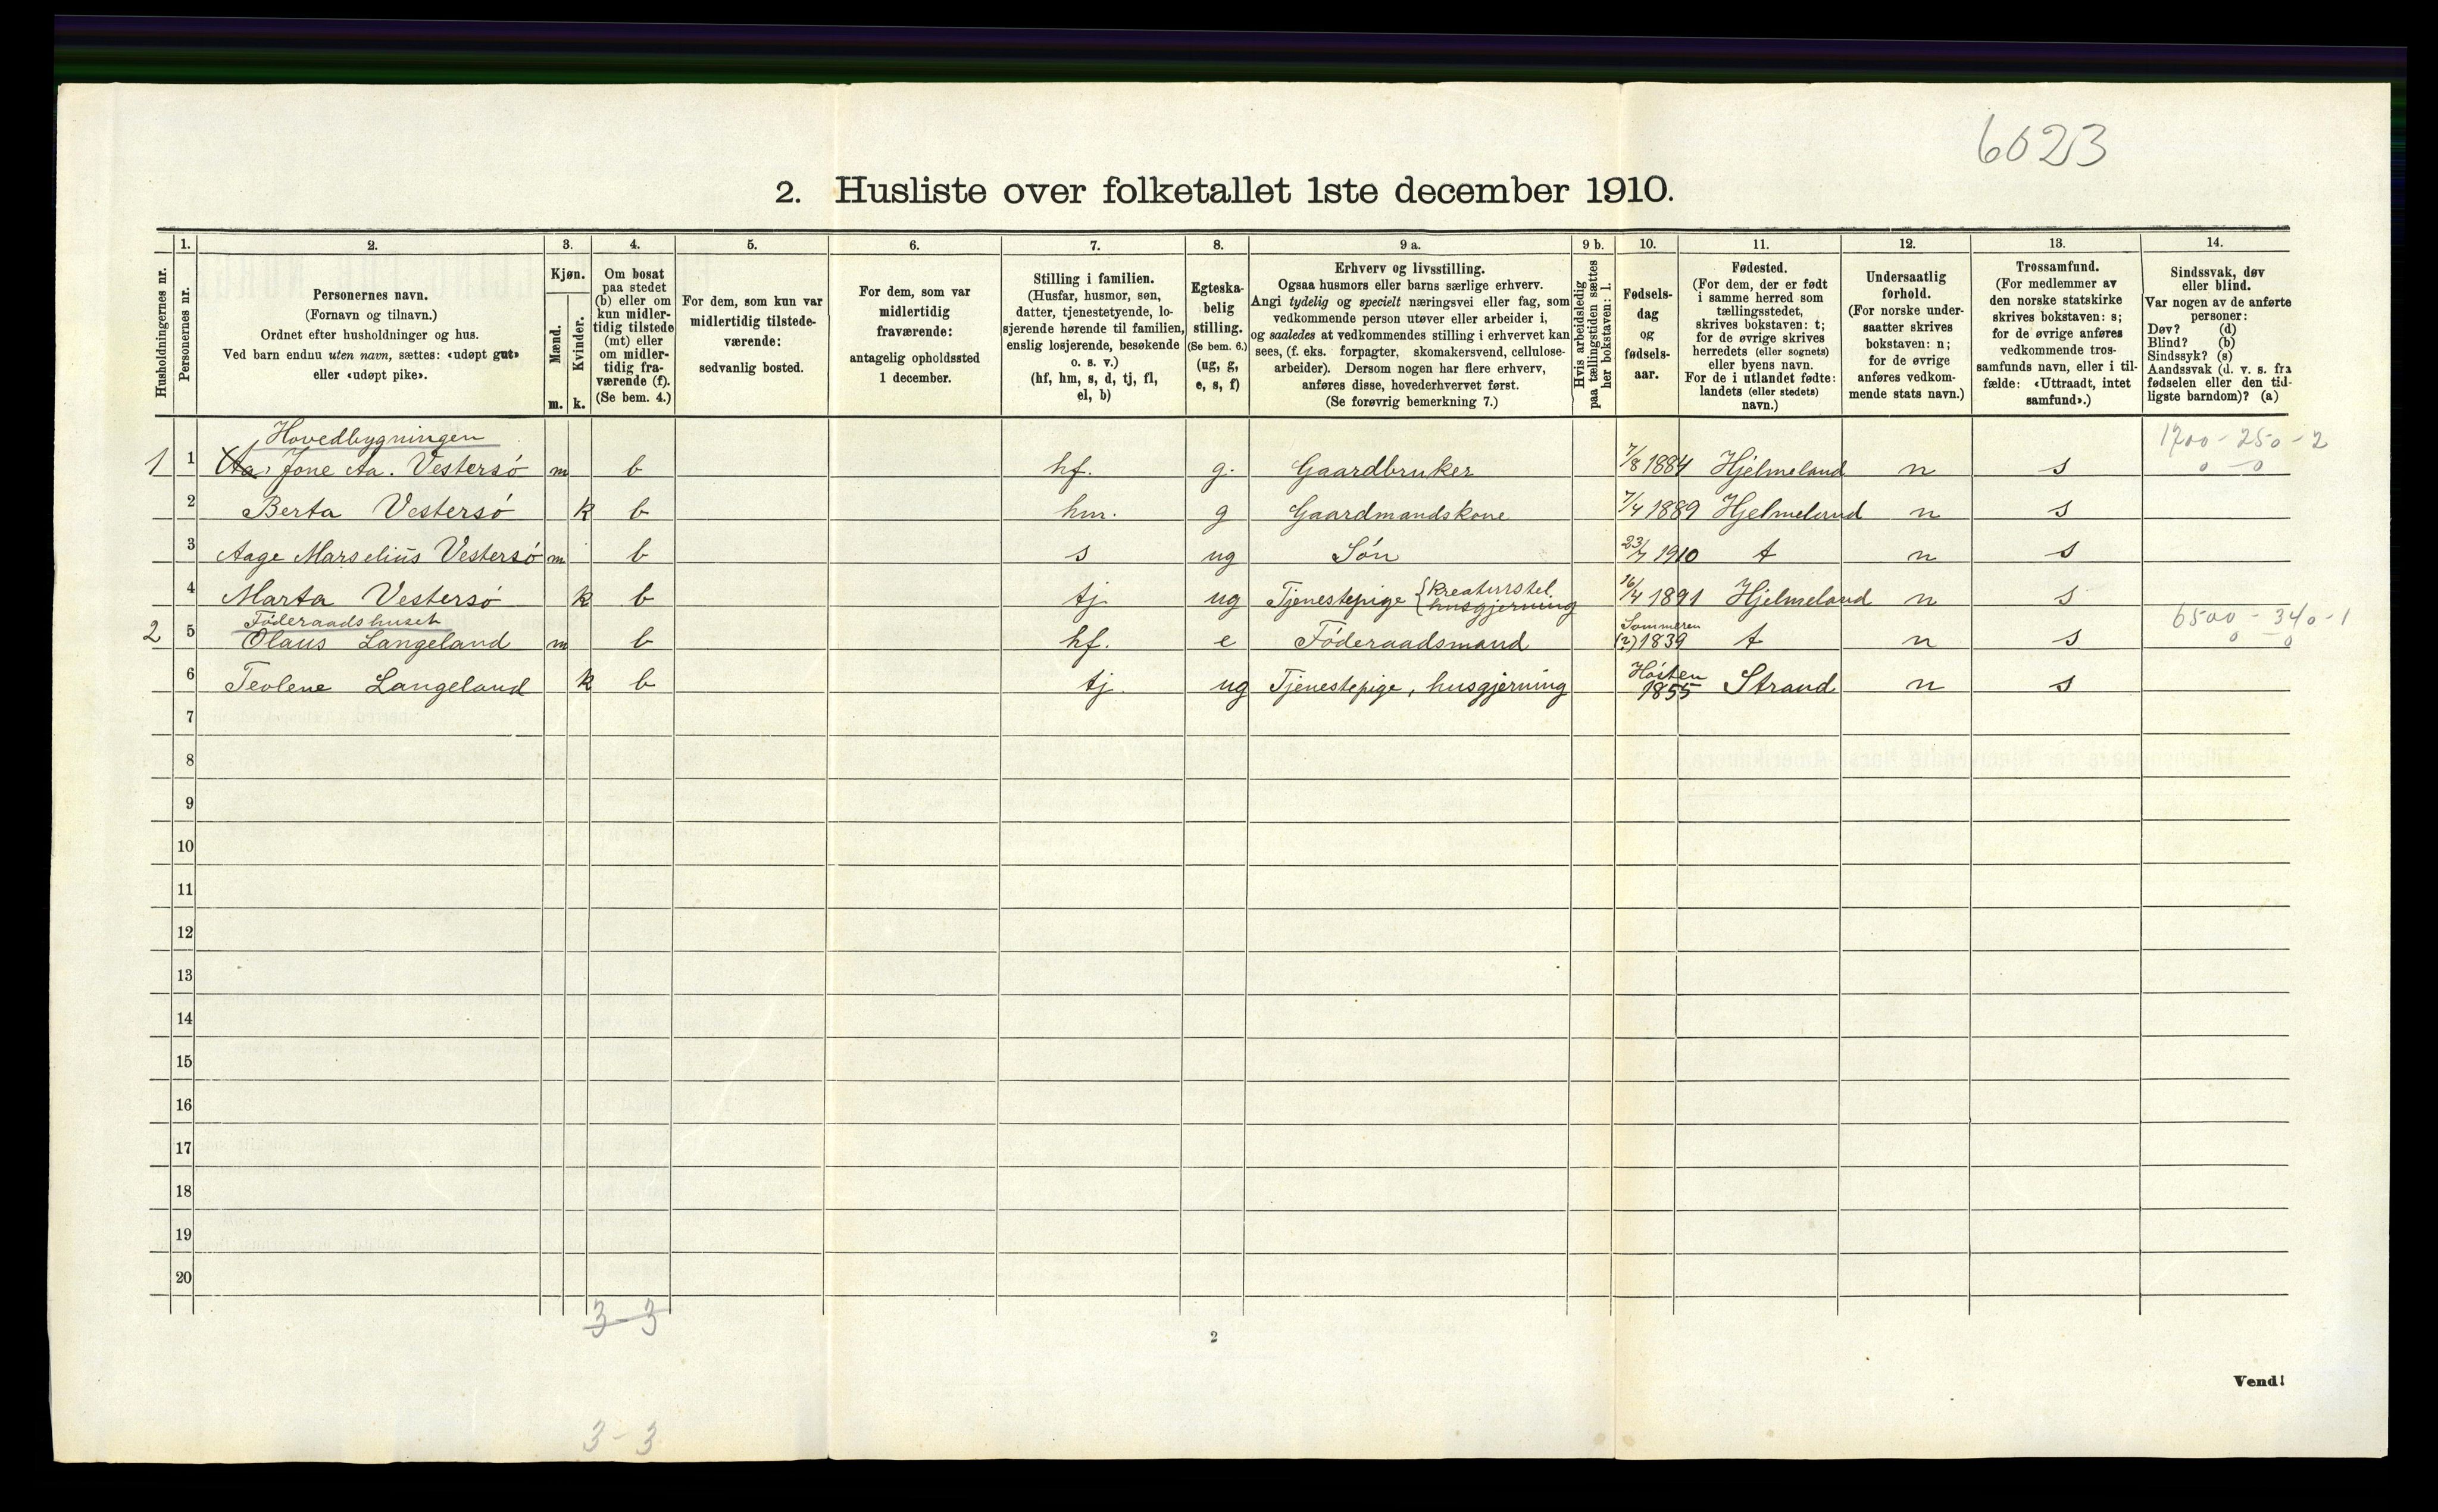 6023
2. Husliste over folketallet 1ste december 1910.
Husholdningernes nr.
1.
Personernes nr.
2.
Personernes navn.
(Fornavn og tilnavn.)
Ordnet efter husholdninger og hus.
Ved barn endnu uten navn, sættes: «udøpt gut»
eller «udøpt pike».
3.
Kjøn.
Mænd.
m.
Kvinder.
k.
4.
Om bosat
paa stedet
(b) eller om
kun midler-
tidig tilstede
(mt) eller
om midler-
tidig fra-
værende (f).
(Se bem. 4.)
5.
For dem, som kun var
midlertidig tilstede-
værende:
sedvanlig bosted.
6.
For dem, som var
midlertidig
fraværende:
antagelig opholdssted
1 december.
7.
Stilling i familien.
(Husfar, husmor, søn,
datter, tjenestetyende, lo-
sjerende hørende til familien,
enslig losjerende, besøkende
o. s. v.)
(hf, hm, s, d, tj, fl,
el, b)
8.
Egteska-
belig
stilling.
(Se bem. 6.)
(ug, g,
e, s, f)
9 a.
Erhverv og livsstilling.
Ogsaa husmors eller barns særlige erhverv.
Angi tydelig og specielt næringsvei eller fag, som
vedkommende person utøver eller arbeider i,
og saaledes at vedkommendes stilling i erhvervet kan
sees, (f. eks. forpagter, skomakersvend, cellulose-
arbeider). Dersom nogen har flere erhverv,
anføres disse, hovederhvervet først.
(Se forøvrig bemerkning 7.)
9 b.
Hvis arbeidsledig
paa tællingstiden sættes
her bokstaven: l.
10.
Fødsels-
dag
og
fødsels-
aar.
11.
Fødested.
(For dem, der er født
i samme herred som
tællingsstedet,
skrives bokstaven: t;
for de øvrige skrives
herredets (eller sognets)
eller byens navn.
For de i utlandet fødte:
landets (eller stedets)
navn.)
12.
Undersaatlig
forhold.
(For norske under-
saatter skrives
bokstaven: n;
for de øvrige
anføres vedkom-
mende stats navn.)
13.
Trossamfund.
(For medlemmer av
den norske statskirke
skrives bokstaven: s;
for de øvrige anføres
vedkommende tros-
samfunds navn, eller i til-
fælde: «Uttraadt, intet
samfund».)
14.
Sindssvak, døv
eller blind.
Var nogen av de anførte
personer:
Døv? (d)
Blind? (b)
Sindssyk? (s)
Aandssvak (d. v. s. fra
fødselen eller den tid-
ligste barndom)? (a)
Hovedbygningen
1700 - 250 - 2
0 - 0
1 1 Aa. Jone Aa. Vestersö m b hf. g. Gaardbruker 7/8 1884 Hjelmeland n s
2 Berta Vestersö k b hm. g Gaardmandskone 7/4 1889 Hjelmeland n s
3 Aage Marselius Vestersö m b s ug Sön 23/7 1910 t n s
4 Marta Vestersö k b tj ug Tjenestepige { kreaturstel husgjerning 16/4 1891 Hjelmeland n s
Föderaadshuset
6500 - 340 - 1
0 - 0
2 5 Olaus Langeland m b hf. e Föderaadsmand Sommeren (?) 1839 t n s
6 Teolene Langeland k b tj. ug Tjenestepige, husgjerning Hösten 1855 Strand n s
7
8
9
10
11
12
13
14
15
16
17
18
19
20
3-3
2
Vend!
3-3